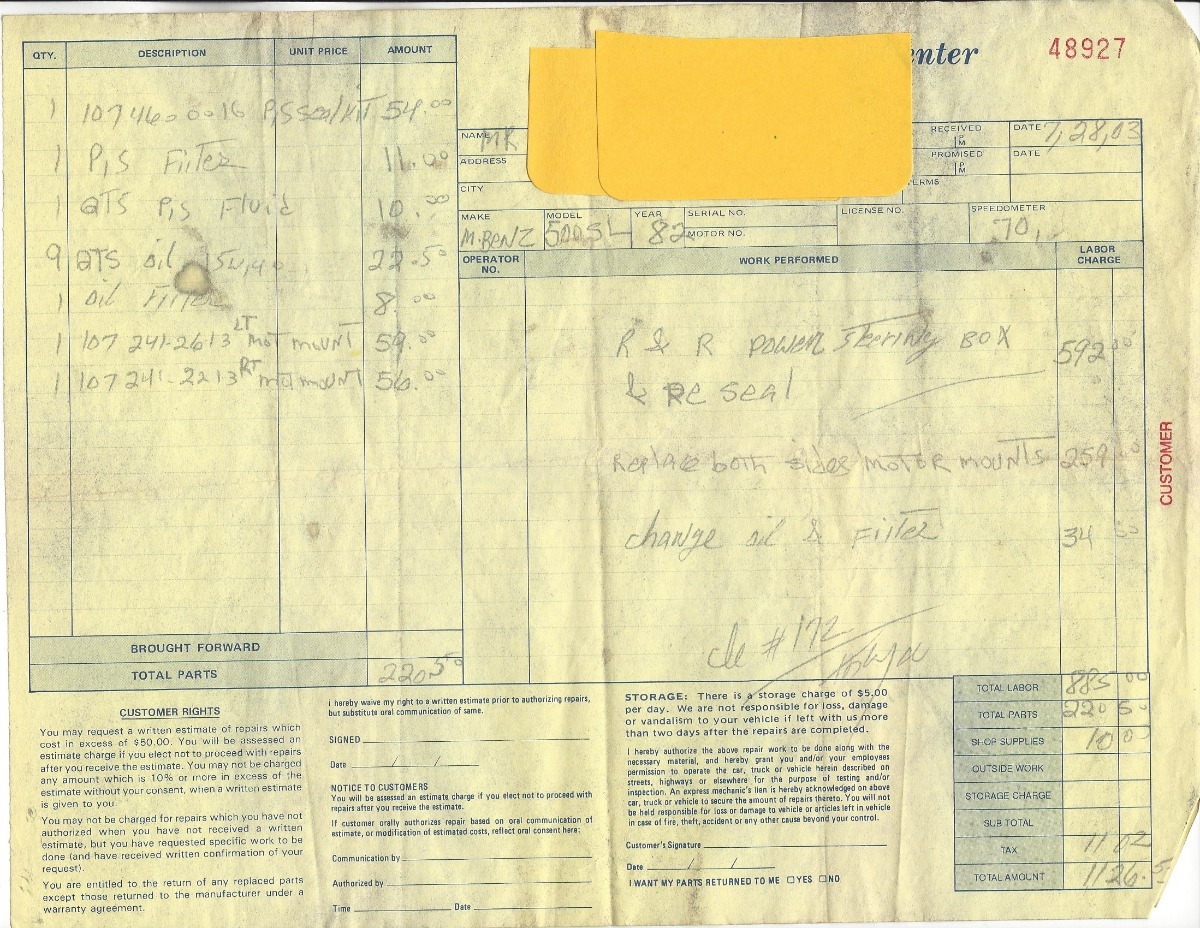 enter
48927
QTY.
DESCRIPTION
UNIT PRICE
AMOUNT
1 107 460 00 16 P,S seal/KIT 54.00
1 P,S Fiiter 11.00
1 QTS P,S Fluid 10.00
9 QTS oil 15W,40 22.50
1 oil Fiiter 8.00
1 107 241-2613 LT mot mount 59.00
1 107 241-2213 RT mot mount 56.00
BROUGHT FORWARD
TOTAL PARTS 220.50
NAME MR
ADDRESS
CITY
RECEIVED
PM
DATE 7,28,03
PROMISED
PM
DATE
TERMS
MAKE M.BENZ
MODEL 500SL
YEAR 82
SERIAL NO.
MOTOR NO.
LICENSE NO.
SPEEDOMETER 70,
OPERATOR NO.
WORK PERFORMED
LABOR CHARGE
R & R POWER STeering BOX 592 00
& Re seal
Replace both sides MOTOR MOUNTS 259 00
change oil & Fiiter 34 00
#172
CUSTOMER
CUSTOMER RIGHTS
You may request a written estimate of repairs which
cost in excess of $50.00. You will be assessed an
estimate charge if you elect not to proceed with repairs
after you receive the estimate. You may not be charged
any amount which is 10% or more in excess of the
estimate without your consent, when a written estimate
is given to you.
You may not be charged for repairs which you have not
authorized when you have not received a written
estimate, but you have requested specific work to be
done (and have received written confirmation of your
request).
You are entitled to the return of any replaced parts
except those returned to the manufacturer under a
warranty agreement.
I hereby waive my right to a written estimate prior to authorizing repairs,
but substitute oral communication of same.
SIGNED
Date / /
NOTICE TO CUSTOMERS
You will be assessed an estimate charge if you elect not to proceed with
repairs after you receive the estimate.
If customer orally authorizes repair based on oral communication of
estimate, or modification of estimated costs, reflect oral consent here:
Communication by
Authorized by
Time Date
STORAGE: There is a storage charge of $5.00
per day. We are not responsible for loss, damage
or vandalism to your vehicle if left with us more
than two days after the repairs are completed.
I hereby authorize the above repair work to be done along with the
necessary material, and hereby grant you and/or your employees
permission to operate the car, truck or vehicle herein described on
streets, highways or elsewhere for the purpose of testing and/or
inspection. An express mechanic's lien is hereby acknowledged on above
car, truck or vehicle to secure the amount of repairs thereto. You will not
be held responsible for loss or damage to vehicle or articles left in vehicle
in case of fire, theft, accident or any other cause beyond your control.
Customer's Signature
Date / /
I WANT MY PARTS RETURNED TO ME ☐YES ☐NO
TOTAL LABOR 885 00
TOTAL PARTS 220 50
SHOP SUPPLIES 10 00
OUTSIDE WORK
STORAGE CHARGE
SUB TOTAL
TAX 11 02
TOTAL AMOUNT 1126.5